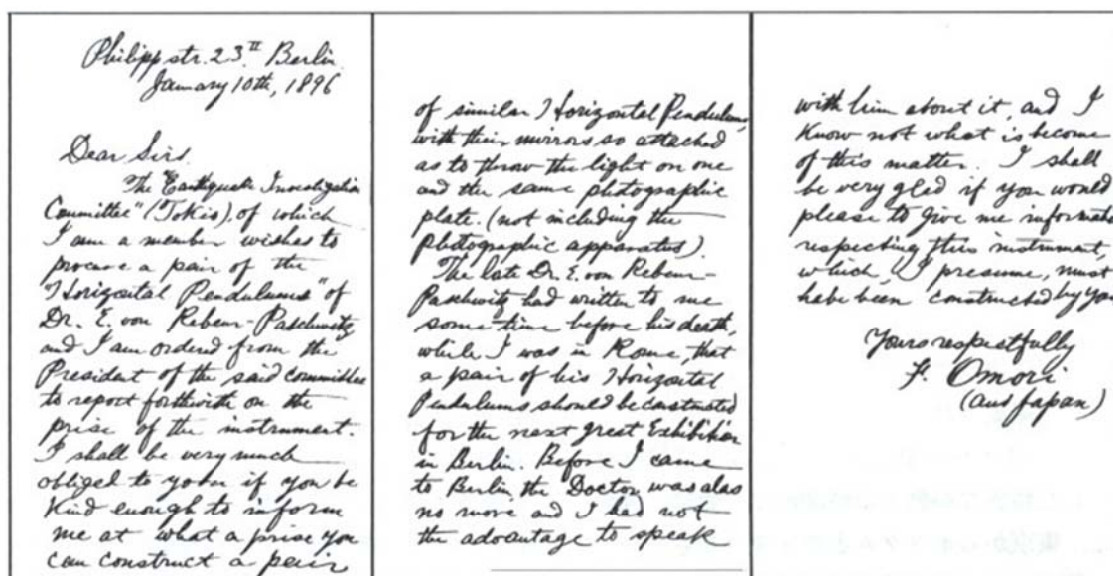 Philippstr. 23 II Berlin
January 10th, 1896
Dear Sirs.
The "Earthquake Investigation
Committee" (Tokio), of which
I am a member wishes to
procure a pair of the
"Horizontal Pendulums" of
Dr. E. von Rebeur-Paschwitz
and I am ordered from the
President of the said committee
to report forthwith on the
prise of the instrument.
I shall be very much
obliged to you if you be
kind enough to inform
me at what a prise you
can construct a pair
of similar Horizontal Pendulums
with their mirrors so attached
as to throw the light on one
and the same photographic
plate. (not including the
photographic apparatus).
The late Dr. E. von Rebeur-
Paschwitz had written to me
some time before his death,
while I was in Rome, that
a pair of his Horizontal
Pendulums should be constructed
for the next great Exhibition
in Berlin. Before I came
to Berlin the Doctor was alas
no more and I had not
the advantage to speak
with him about it, and I
know not what is become
of this matter. I shall
be very glad if you would
please to give me informatio
respecting this instrument,
which, I presume, must
have been constructed by you
Yours respectfully
F. Omori
(aus Japan)